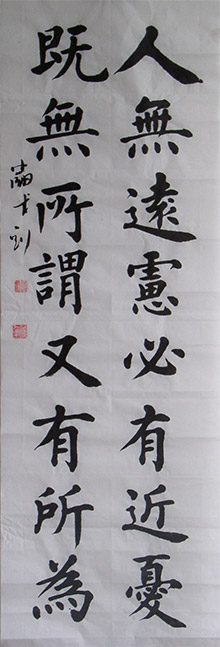 人無遠憲必有近憂
既無所謂又有所為